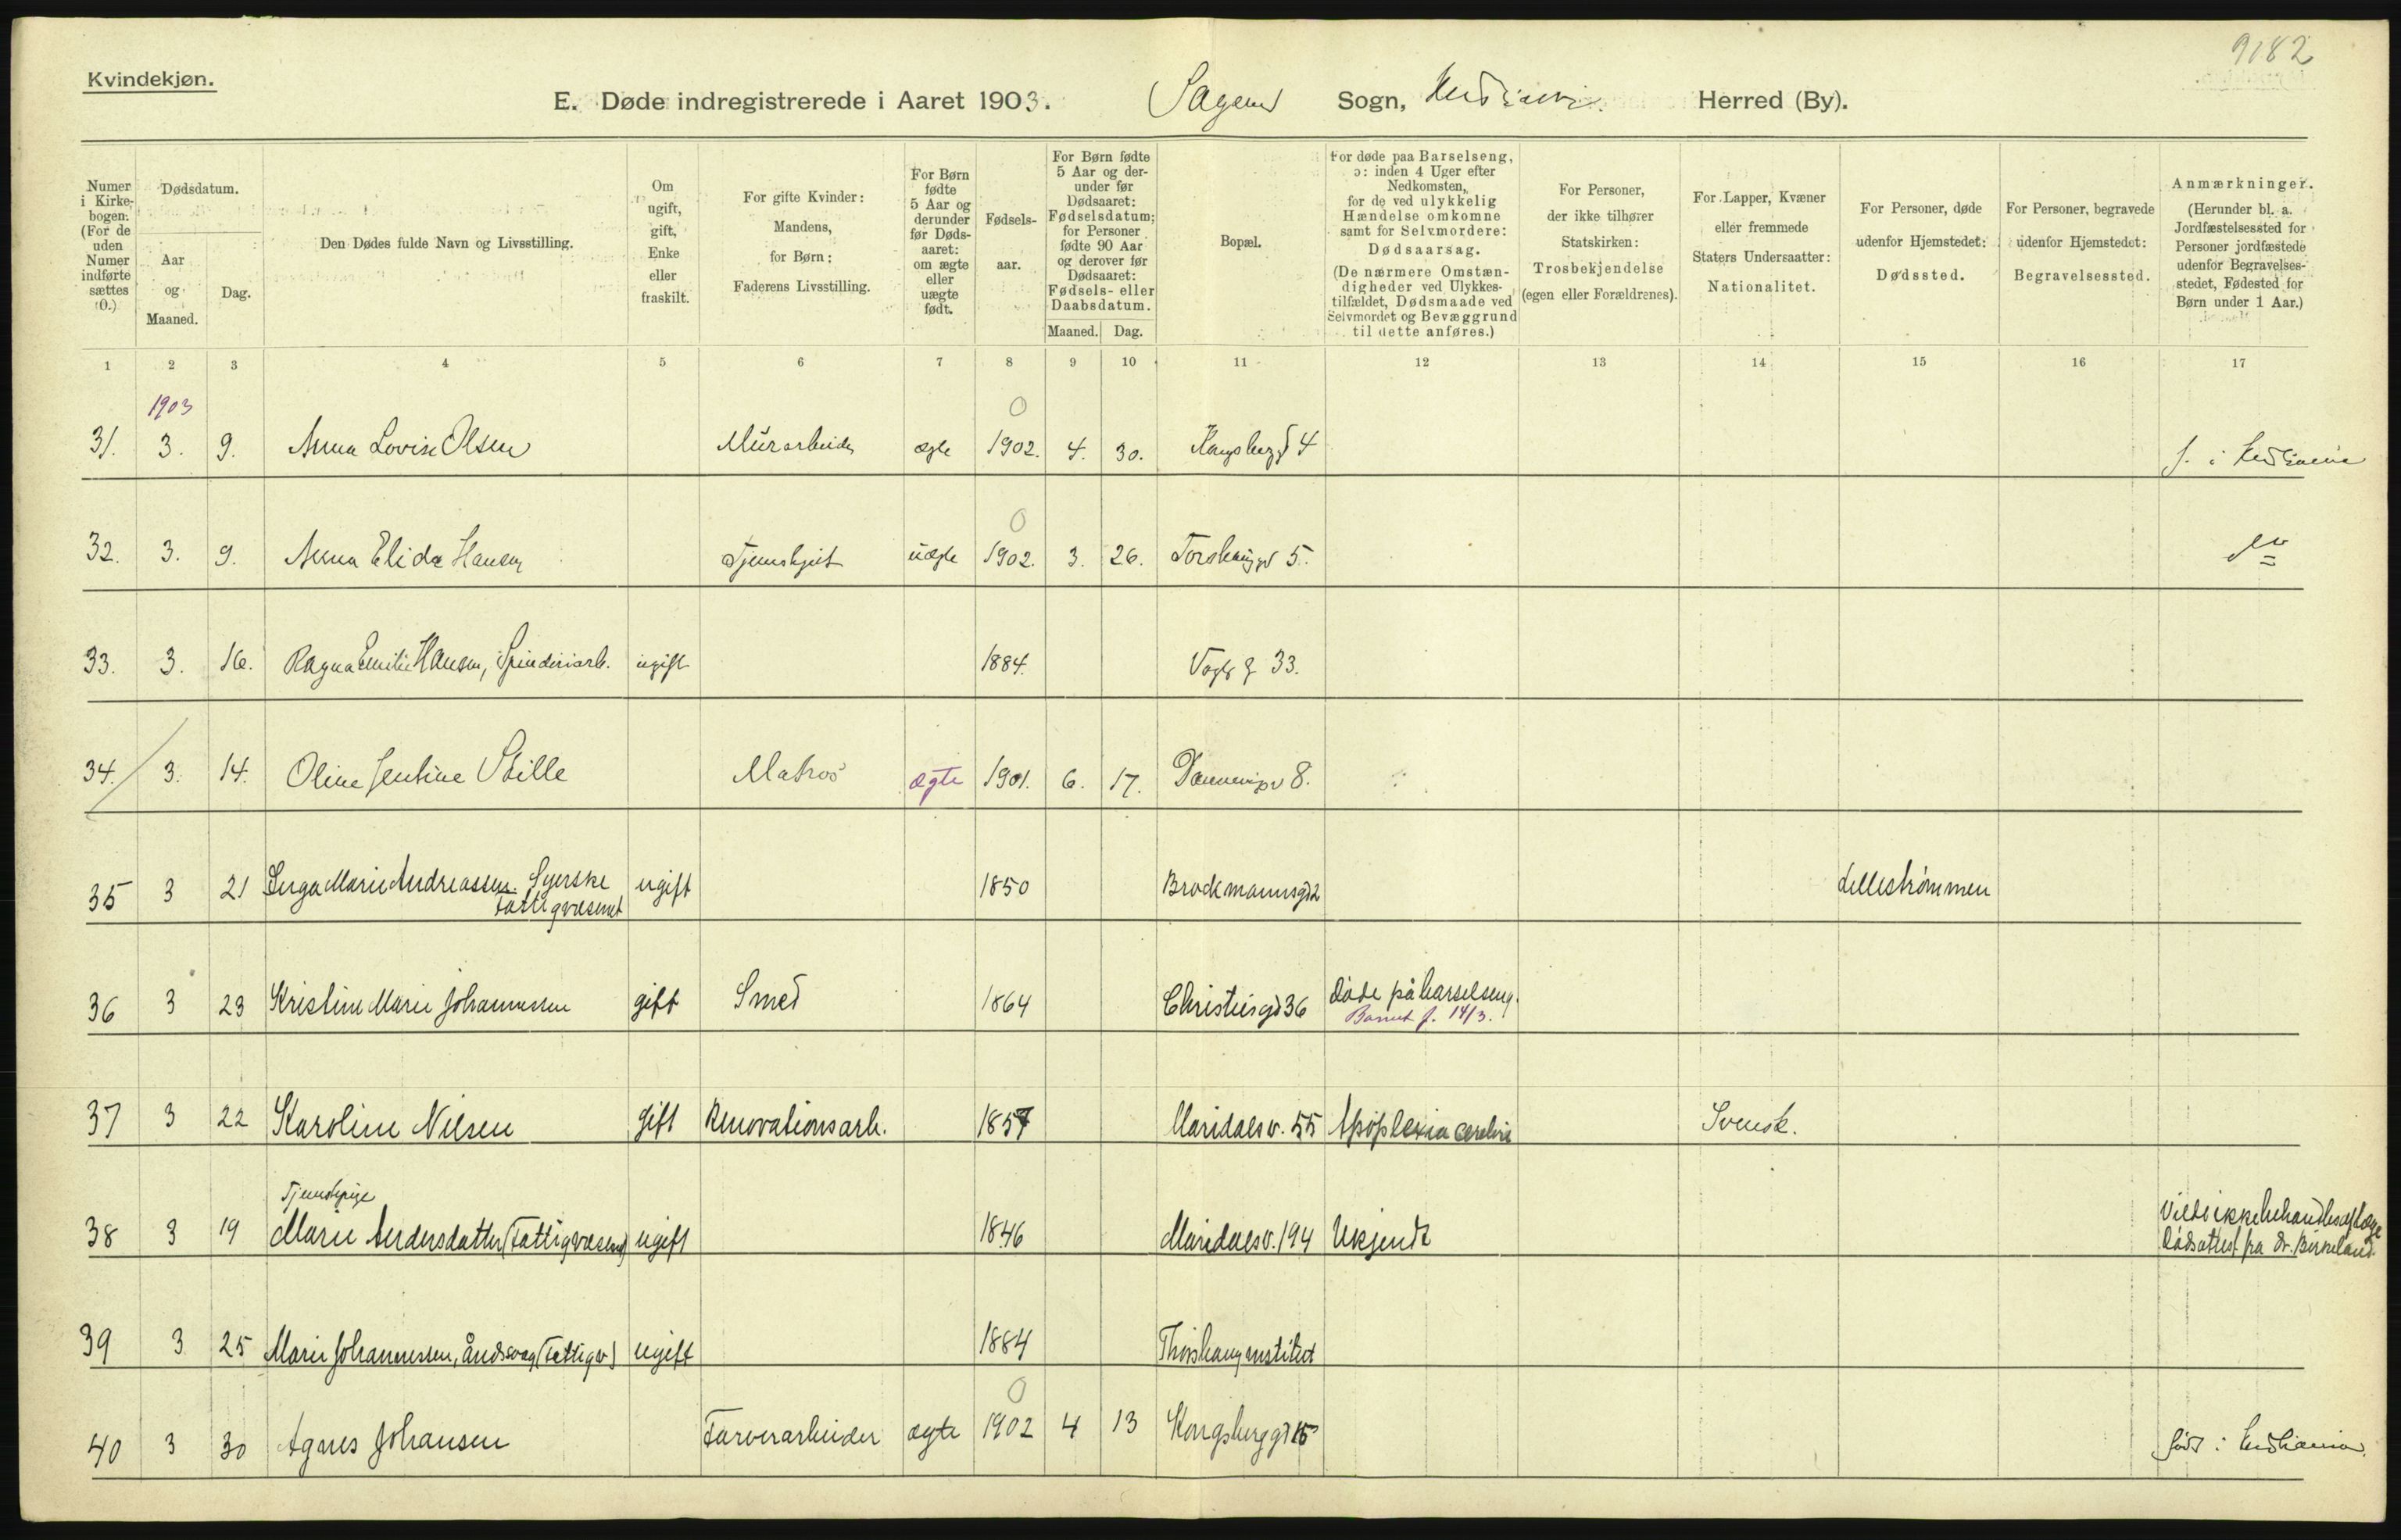 9182
Kvindekjøn.
E. Døde indregistrerede i Aaret 1903. Sagene Sogn, Kristiania Herred (By).
Numer i Kirkebogen. (For de uden Numer indførte sættes 0.)
Dødsdatum.
Aar og Maaned.
Dag.
Den Dødes fulde Navn og Livsstilling.
Om ugift, gift, Enke eller fraskilt.
For gifte Kvinder: Mandens, for Børn: Faderens Livsstilling.
For Børn fødte 5 Aar og derunder før Dødsaaret: om ægte eller uægte født.
Fødselsaar.
For Børn fødte 5 Aar og derunder før Dødsaaret: Fødselsdatum; for Personer fødte 90 Aar og derover før Dødsaaret: Fødsels- eller Daabsdatum.
Maaned. Dag.
Bopæl.
For døde paa Barselseng, ɔ: inden 4 Uger efter Nedkomsten, for de ved ulykkelig Hændelse omkomne samt for Selvmordere: Dødsaarsag. (De nærmere Omstændigheder ved Ulykkestilfældet, Dødsmaade ved Selvmordet og Bevæggrund til dette anføres.)
For Personer, der ikke tilhører Statskirken: Trosbekjendelse (egen eller Forældrenes).
For Lapper, Kvæner eller fremmede Staters Undersaatter: Nationalitet.
For Personer, døde udenfor Hjemstedet: Dødssted.
For Personer, begravede udenfor Hjemstedet: Begravelsessted.
Anmærkninger. (Herunder bl. a. Jordfæstelsessted for Personer jordfæstede udenfor Begravelsesstedet, Fødested for Børn under 1 Aar.)
1 2 3 4 5 6 7 8 9 10 11 12 13 14 15 16 17
1903 0
31. 3. 9. Anna Lovise Olsen Murarbeider ægte 1902. 4. 30. 4 f. i Kristiania
0
32. 3. 9. Anna Elida Hansen Tjenestepige uægte 1902. 3. 26. Torshauggd 5. do
33. 3. 16. Ragna Emilie Hansen, Spinderiarb. ugift 1884. Vogts g 33.
34. 3. 14. Oline Jentine Stille Matros ægte 1901. 6. 17. Dannevigsv 8.
35 3 21 Inga Marie Andreassen. Syerske ugift 1850 Brockmannsgd2 Lillestrømmen
Fattigvæsenet
36 3 23 Kristine Marie Johannessen gift Smed 1864 Christiesgd36 døde på barselseng.
Barnet f. 14/3.
37 3 22 Karoline Nilsen gift Renovationsarb. 1857 Maridalsv. 55 Apoplexia cerebri Svensk.
Tjenestepige
38 3 19 Marie Andersdatter (Fattigvæsenet) ugift 1846 Maridalsv. 194 Ukjendt Vilde ikke behandles af Læge
Dødsattest fra dr. Birkeland.
39 3 25 Marie Johannessen, åndssvag (Fattigv) ugift 1884 Thorshauginstitut
0
40 3 30 Agnes Johansen Farverarbeider ægte 1902 4 13 Kongsberggd 15 født i Kristiania